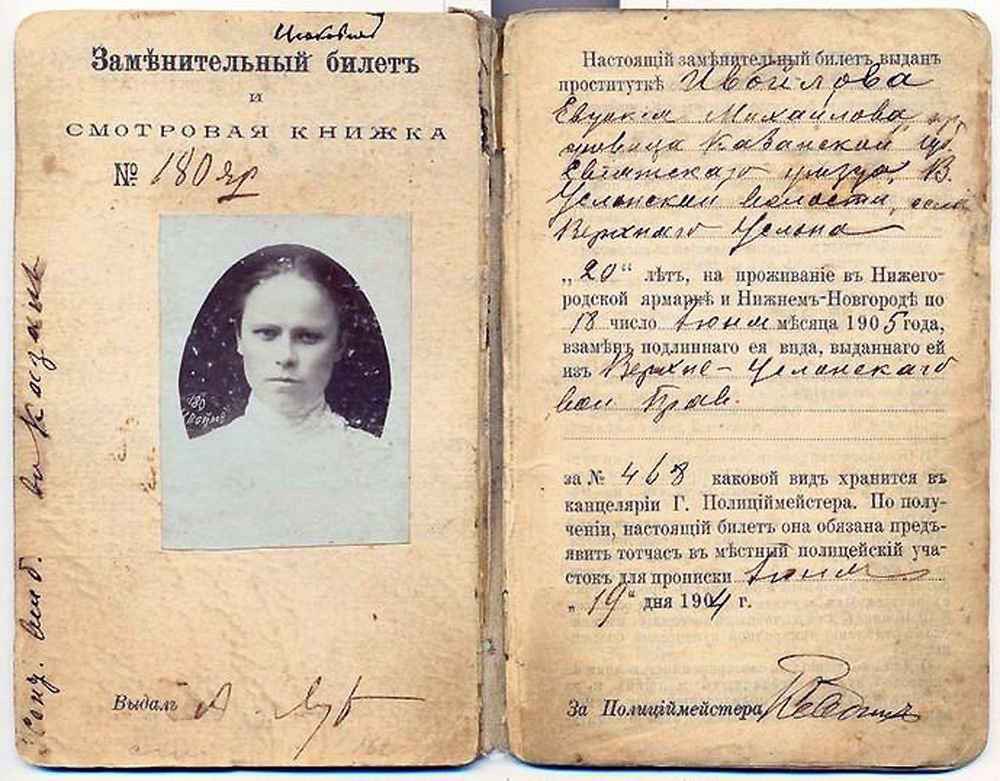 Замѣнительный билетъ
и
СМОТРОВАЯ КНИЖКА
№ 180 яр
180
Выдалъ
Настоящій замѣнительный билетъ выданъ
проституткѣ Ивойлова
Евдокія Михайлова
Казанской губ
уѣзда, В.
Услонской волости, села
Верхняго Услона
„20“ лѣтъ, на проживаніе въ Нижего-
родской ярмаркѣ и Нижнемъ-Новгородѣ по
18 число Іюня мѣсяца 1905 года,
взамѣнъ подлиннаго ея вида, выданнаго ей
изъ Верхне-Услонскаго
вол Прав.
за № 468 каковой видъ хранится въ
канцеляріи Г. Полиціймейстера. По полу-
ченіи, настоящій билетъ она обязана предъ-
явить тотчасъ въ мѣстный полицейскій уча-
стокъ для прописки Іюня
„19“ дня 1904 г.
За Полиціймейстера
въ Казань